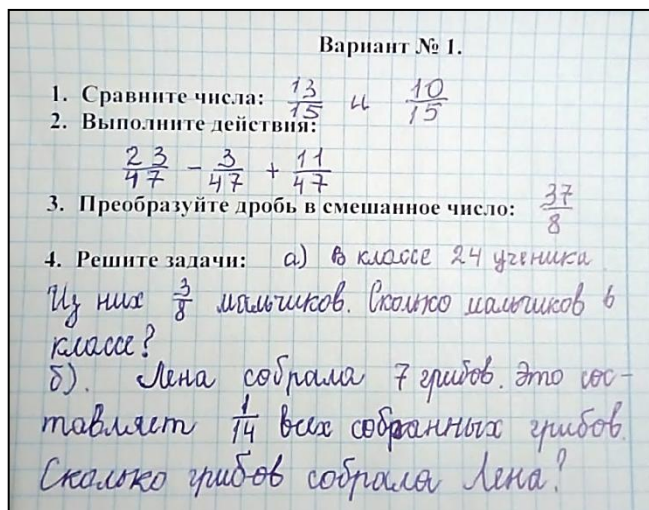 Вариант № 1.
1. Сравните числа: 13/15 и 10/15
2. Выполните действия:
23/47 - 3/47 + 11/47
3. Преобразуйте дробь в смешанное число: 37/8
4. Решите задачи: а) В классе 24 ученика.
Из них 3/8 мальчиков. Сколько мальчиков в
классе?
б). Лена собрала 7 грибов. Это сос-
тавляет 1/14 всех собранных грибов.
Сколько грибов собрала Лена?